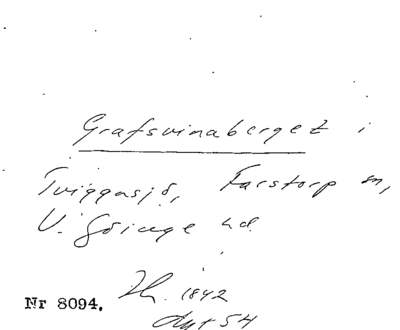 Grafsvinaberget i
Tviggasjö, Farstorp sn,
V. Göinge hd.
Nr 8094. Th. 1842